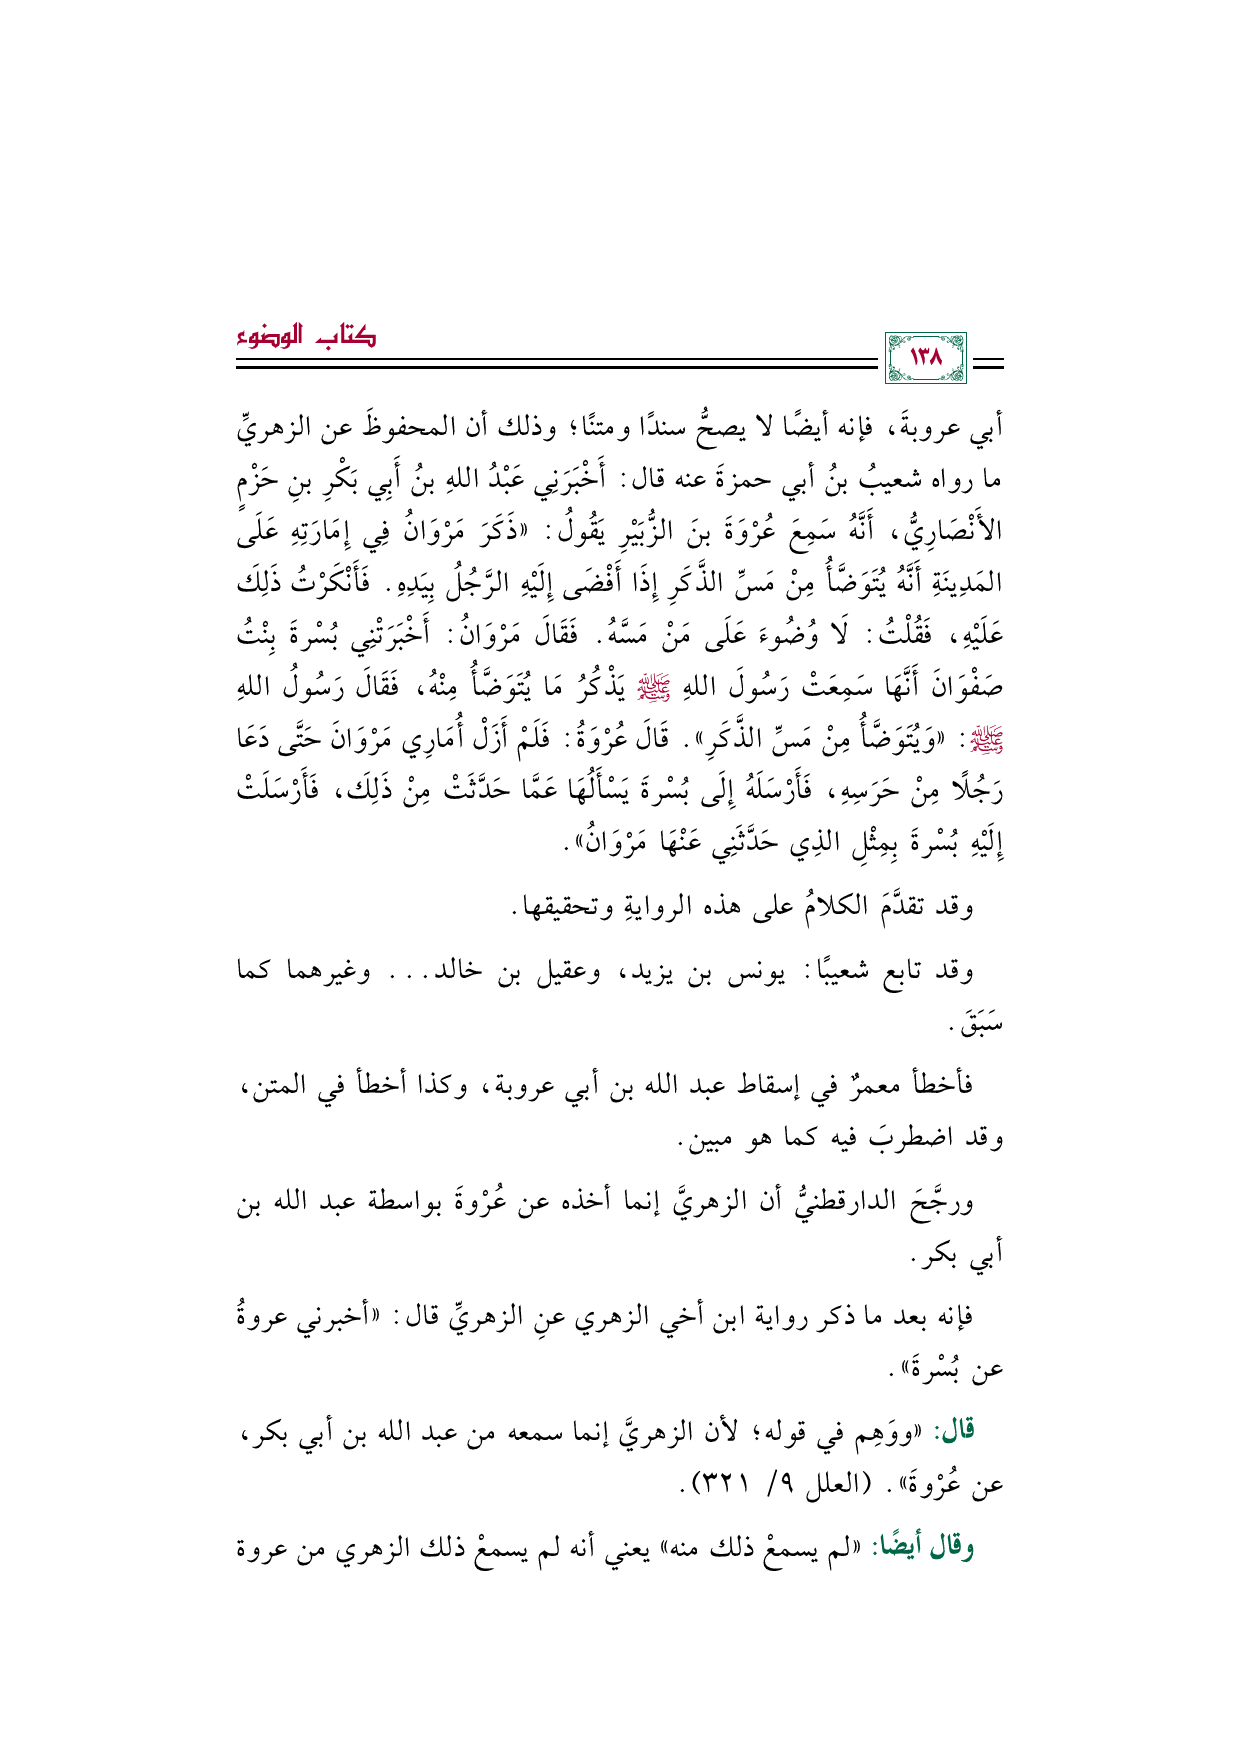 ١٣٨
كتاب الوضوء
أبي عروبةَ، فإنه أيضًا لا يصحُّ سندًا ومتنًا؛ وذلك أن المحفوظَ عن الزهريِّ
ما رواه شعيبُ بنُ أبي حمزةَ عنه قال: أَخْبَرَنِي عَبْدُ اللهِ بنُ أَبِي بَكْرِ بنِ حَزْمٍ
الأَنْصَارِيُّ، أَنَّهُ سَمِعَ عُرْوَةَ بنَ الزُّبَيْرِ يَقُولُ: «ذَكَرَ مَرْوَانُ فِي إِمَارَتِهِ عَلَى
المَدِينَةِ أَنَّهُ يُتَوَضَّأُ مِنْ مَسِّ الذَّكَرِ إِذَا أَفْضَى إِلَيْهِ الرَّجُلُ بِيَدِهِ. فَأَنْكَرْتُ ذَلِكَ
عَلَيْهِ، فَقُلْتُ: لَا وُضُوءَ عَلَى مَنْ مَسَّهُ. فَقَالَ مَرْوَانُ: أَخْبَرَتْنِي بُسْرةَ بِنْتُ
صَفْوَانَ أَنَّهَا سَمِعَتْ رَسُولَ اللهِ ﷺ يَذْكُرُ مَا يُتَوَضَّأُ مِنْهُ، فَقَالَ رَسُولُ اللهِ
ﷺ: «وَيُتَوَضَّأُ مِنْ مَسِّ الذَّكَرِ». قَالَ عُرْوَةُ: فَلَمْ أَزَلْ أُمَارِي مَرْوَانَ حَتَّى دَعَا
رَجُلًا مِنْ حَرَسِهِ، فَأَرْسَلَهُ إِلَى بُسْرةَ يَسْأَلُهَا عَمَّا حَدَّثَتْ مِنْ ذَلِكَ، فَأَرْسَلَتْ
إِلَيْهِ بُسْرةَ بِمِثْلِ الذِي حَدَّثَنِي عَنْهَا مَرْوَانُ».
وقد تقدَّمَ الكلامُ على هذه الروايةِ وتحقيقها.
وقد تابع شعيبًا: يونس بن يزيد، وعقيل بن خالد... وغيرهما كما
سَبَقَ.
فأخطأ معمرٌ في إسقاط عبد الله بن أبي عروبة، وكذا أخطأ في المتن،
وقد اضطربَ فيه كما هو مبين.
ورجَّحَ الدارقطنيُّ أن الزهريَّ إنما أخذه عن عُرْوةَ بواسطة عبد الله بن
أبي بكر.
فإنه بعد ما ذكر رواية ابن أخي الزهري عنِ الزهريِّ قال: «أخبرني عروةُ
عن بُسْرةَ».
قال: «ووَهِم في قوله؛ لأن الزهريَّ إنما سمعه من عبد الله بن أبي بكر،
عن عُرْوةَ». (العلل ٩/ ٣٢١).
وقال أيضًا: «لم يسمعْ ذلك منه» يعني أنه لم يسمعْ ذلك الزهري من عروة